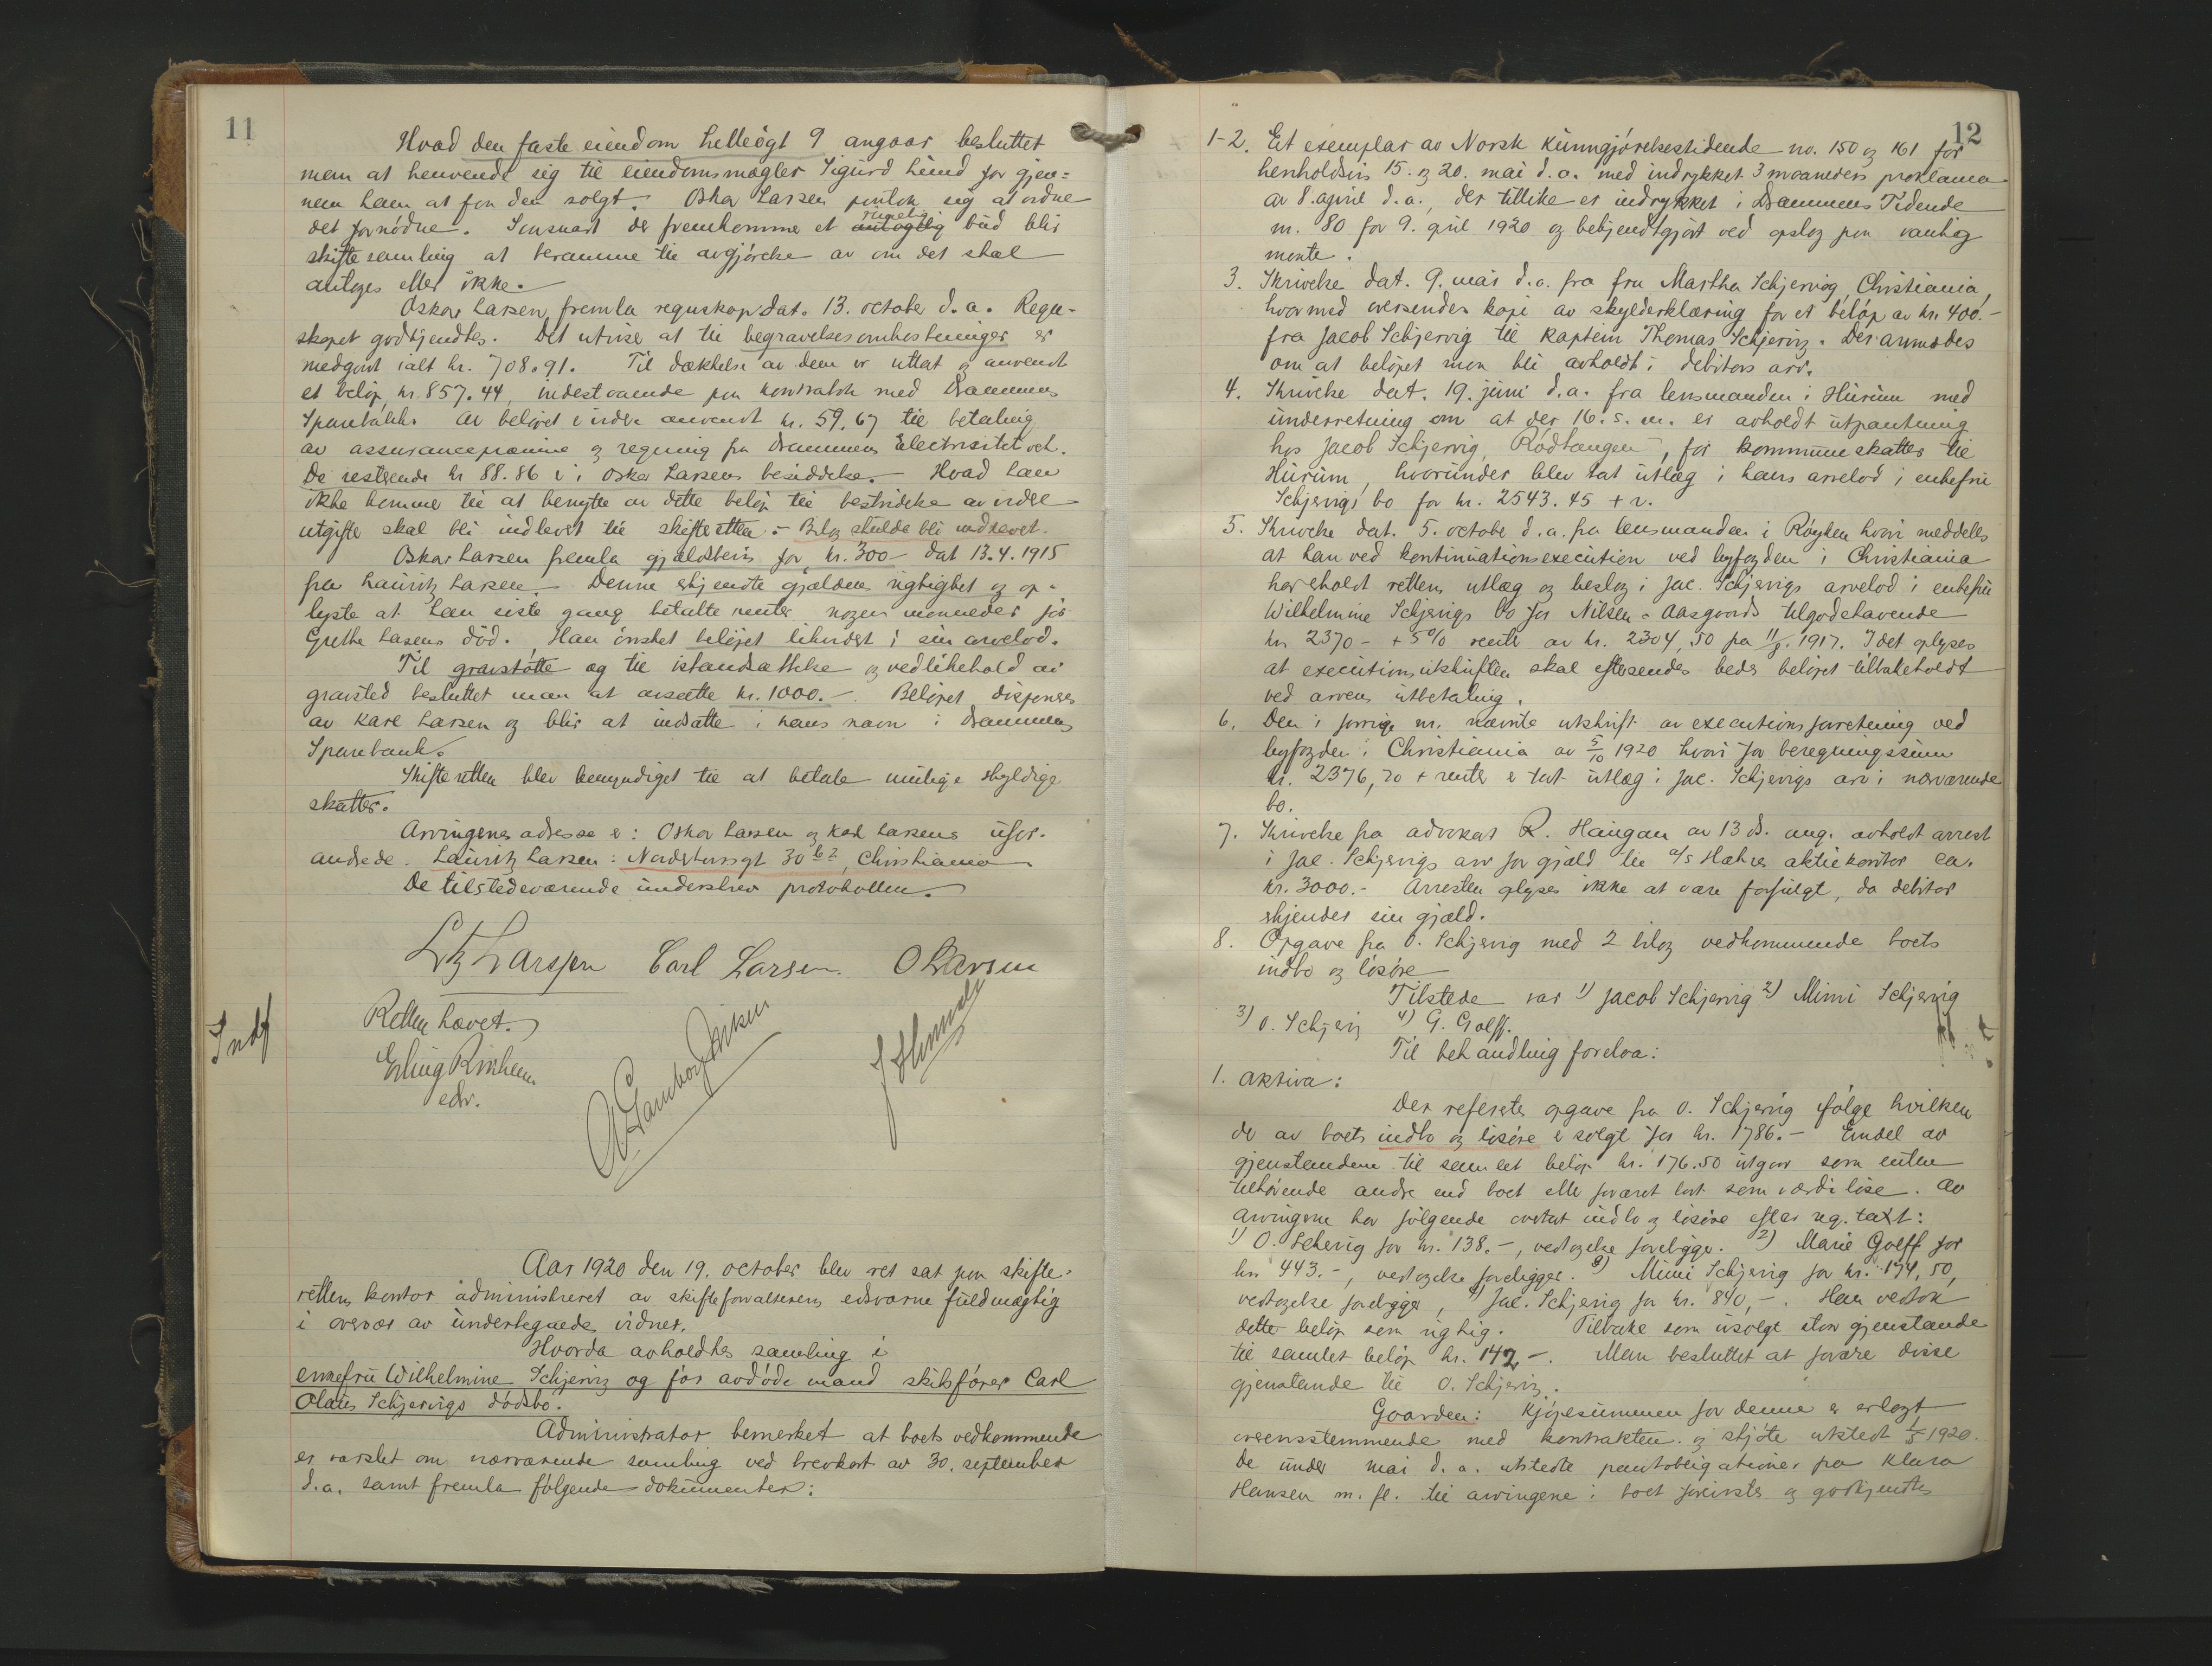 11
Hvad den faste eiendom Helleögt 9 angaar besluttet
man at henvende sig til eiendomsmægler Sigurd Lund for gjen-
nem ham at faa den solgt. Oskar Larsen paatok sig at ordne
det fornødne. Saasnart der fremkommer et antagelig rimelig bud blir
skiftesamling at beramme til avgjörelse av om det skal
antages eller ikke.
Oskar Larsen fremla regnskap dat. 13. october d.a. Regn-
skapet godkjendtes. Det utviser at til begravelsesomkostninger er
medgaat ialt kr. 708.91. Til dækkelse av dem er uttat og anvendt
et beløp kr. 857.44, indestaaende paa kontrabok med Drammens
Sparebank. Av beløpet er endv. anvendt kr. 59.67 til betaling
av assurancepræmie og regning fra Drammens Electricitetverk.
De resterende kr 88.86 er i Oskar Larsens besiddelse. Hvad han
ikke kommer til at benytte av dette beløp til bestridelse av videre
utgifter skal bli indlevert til skifteretten. - Beløp skulde bli indlevert.
Oskar Larsen fremla gjældsbevis for kr. 300 dat 13.4.1915
fra Lauritz Larsen. Denne erkjendte gjældens rigtighet og op-
lyste at han siste gang betalte renter nogen maaneder för
Grethe Larsens död. Han ønsket beløpet likvidert i sin arvelod.
Til gravstötte og til istandsættelse og vedlikehold av
gravsted besluttet man at avsætte kr. 1000.-. Beløpet disponeres
av Karl Larsen og blir at indsætte i hans navn i Drammens
Sparebank.
Skifteretten blev bemyndiget til at betale mulige skyldige
skatter.
Arvingenes adresse er: Oskar Larsen og Karl Larsens ufor-
andrede. Lauritz Larsen: Nordstrømsgt 30 b2, Christiania
De tilstedeværende underskrev protokollen.
Ltz Larssen Carl Larsen. O Larsen
Retten hævet.
Indf
Erling Rinhem
edsv.
Aar 1920 den 19. october blev ret sat paa skifte-
rettens kontor administreret av skifteforvalterens edsvorne fuldmægtig
i overvær av undertegnede vidner.
Hvorda avholdtes samling i
enkefru Wilhelmine Schjervig og før avdöde mand skibsfører Carl
Olaus Schjervigs dödsbo.
Administrator bemerket at boets vedkommende
er varslet om nærværende samling ved brevkort av 30. september
d.a. samt fremla følgende dokumenter:
12
1-2. Et exemplar av Norsk Kunngjørelsestidende no. 150 og 161 for
henholdsvis 15. og 20. mai d.a. med indrykket 3 maaneders proklama
av 8. april d.a., der tillike er indrykket i Drammens Tidende
nr. 80 for 9. april 1920 og bekjendtgjört ved opslag paa vanlig
maate.
3. Skrivelse dat. 9. mai d.a. fra fru Martha Schjervig, Christiania,
hvormed oversendes kopi av skylderklæring for et beløp av kr. 400.-
fra Jacob Schjervig til Kaptein Thomas Schjervig. Der anmodes
om at beløpet maa bli avholdt i debitors arv.
4. Skrivelse dat. 19. juni d.a. fra lensmanden i Hurum med
underretning om at der 16. s.m. er avholdt utpantning
hos Jacob Schjervig, Rödtangen, for kommuneskatter til
Hurum, hvorunder blev tat utlæg i hans arvelod i enkefru
Schjervigs bo for kr. 2543.45 + r.
5. Skrivelse dat. 5. octobe d.a. fra lensmanden i Røyken hvori meddeles
at han ved kontinuationsexecution ved byfogden i Christiania
har erholdt rettens utlæg og beslag i Jac. Schjervigs arvelod i enkefru
Wilhelmine Schjervigs bo for Nilsen & Aasgaards tilgodehavende
kr. 2370 - + 5% rente av kr. 2304,50 fra 11/8. 1917. Idet oplyses
at executionsutskriften skal eftersendes bedes beløpet tilbakeholdt
ved arvens utbetaling.
6. Den i forrige nr. nævnte utskrift av executionsforretning ved
byfogden i Christiania av 5/10 1920 hvori for beregningssum
kr. 2376,70 + renter er tat utlæg i Jac. Schjervigs arv i nærværende
bo.
7. Skrivelse fra advokat R. Haugan av 13 ds. ang. avholdt arrest
i Jac. Schjervigs arv for gjæld til a/s Hæhres aktiekontor ca.
kr. 3000.- Arresten oplyses ikke at være forfulgt, da debitor
erkjender sin gjæld.
8. Opgave fra O. Schjervig med 2 bilag vedkommende boets
indbo og lösöre
Tilstede var 1) Jacob Schjervig 2) Mimi Schjervig
3) O. Schjervig 4) G. Golff.
Til behandling forelaa:
1. Aktiva:
Der refertes opgave fra O. Schjervig ifølge hvilken
de av boets indbo og lösöre er solgt for kr. 1786.- Endel av
gjenstandene til samlet beløp kr. 176.50 utgaar som enten
tilhørende andre end boet eller foræret bort som værdiløse. Av
arvingene har følgende overtat indbo og lösöre efter reg. taxt:
1) O. Schervig for kr. 138.-, vedtagelse foreligger. 2) Marie Golff for
kr. 443.-, vedtagelse foreligger. 3) Mimi Schjervig for kr. 174,50,
vedtagelse foreligger, 4) Jac. Schjervig for kr. 840,-. Han vedtok
dette beløp som rigtig. Tilbake som usolgt staar gjenstande
til samlet beløp kr. 142 -. Man besluttet at forære disse
gjenstande til O. Schjervig.
Gaarden: Kjöpesummen for denne er erlagt
overensstemmende med kontrakten og skjöte utstedt 1/5 1920.
De under mai d.a. utstedte pantobligationer fra Klara
Hansen m. fl. til arvingene i boet forevistes og godkjendtes